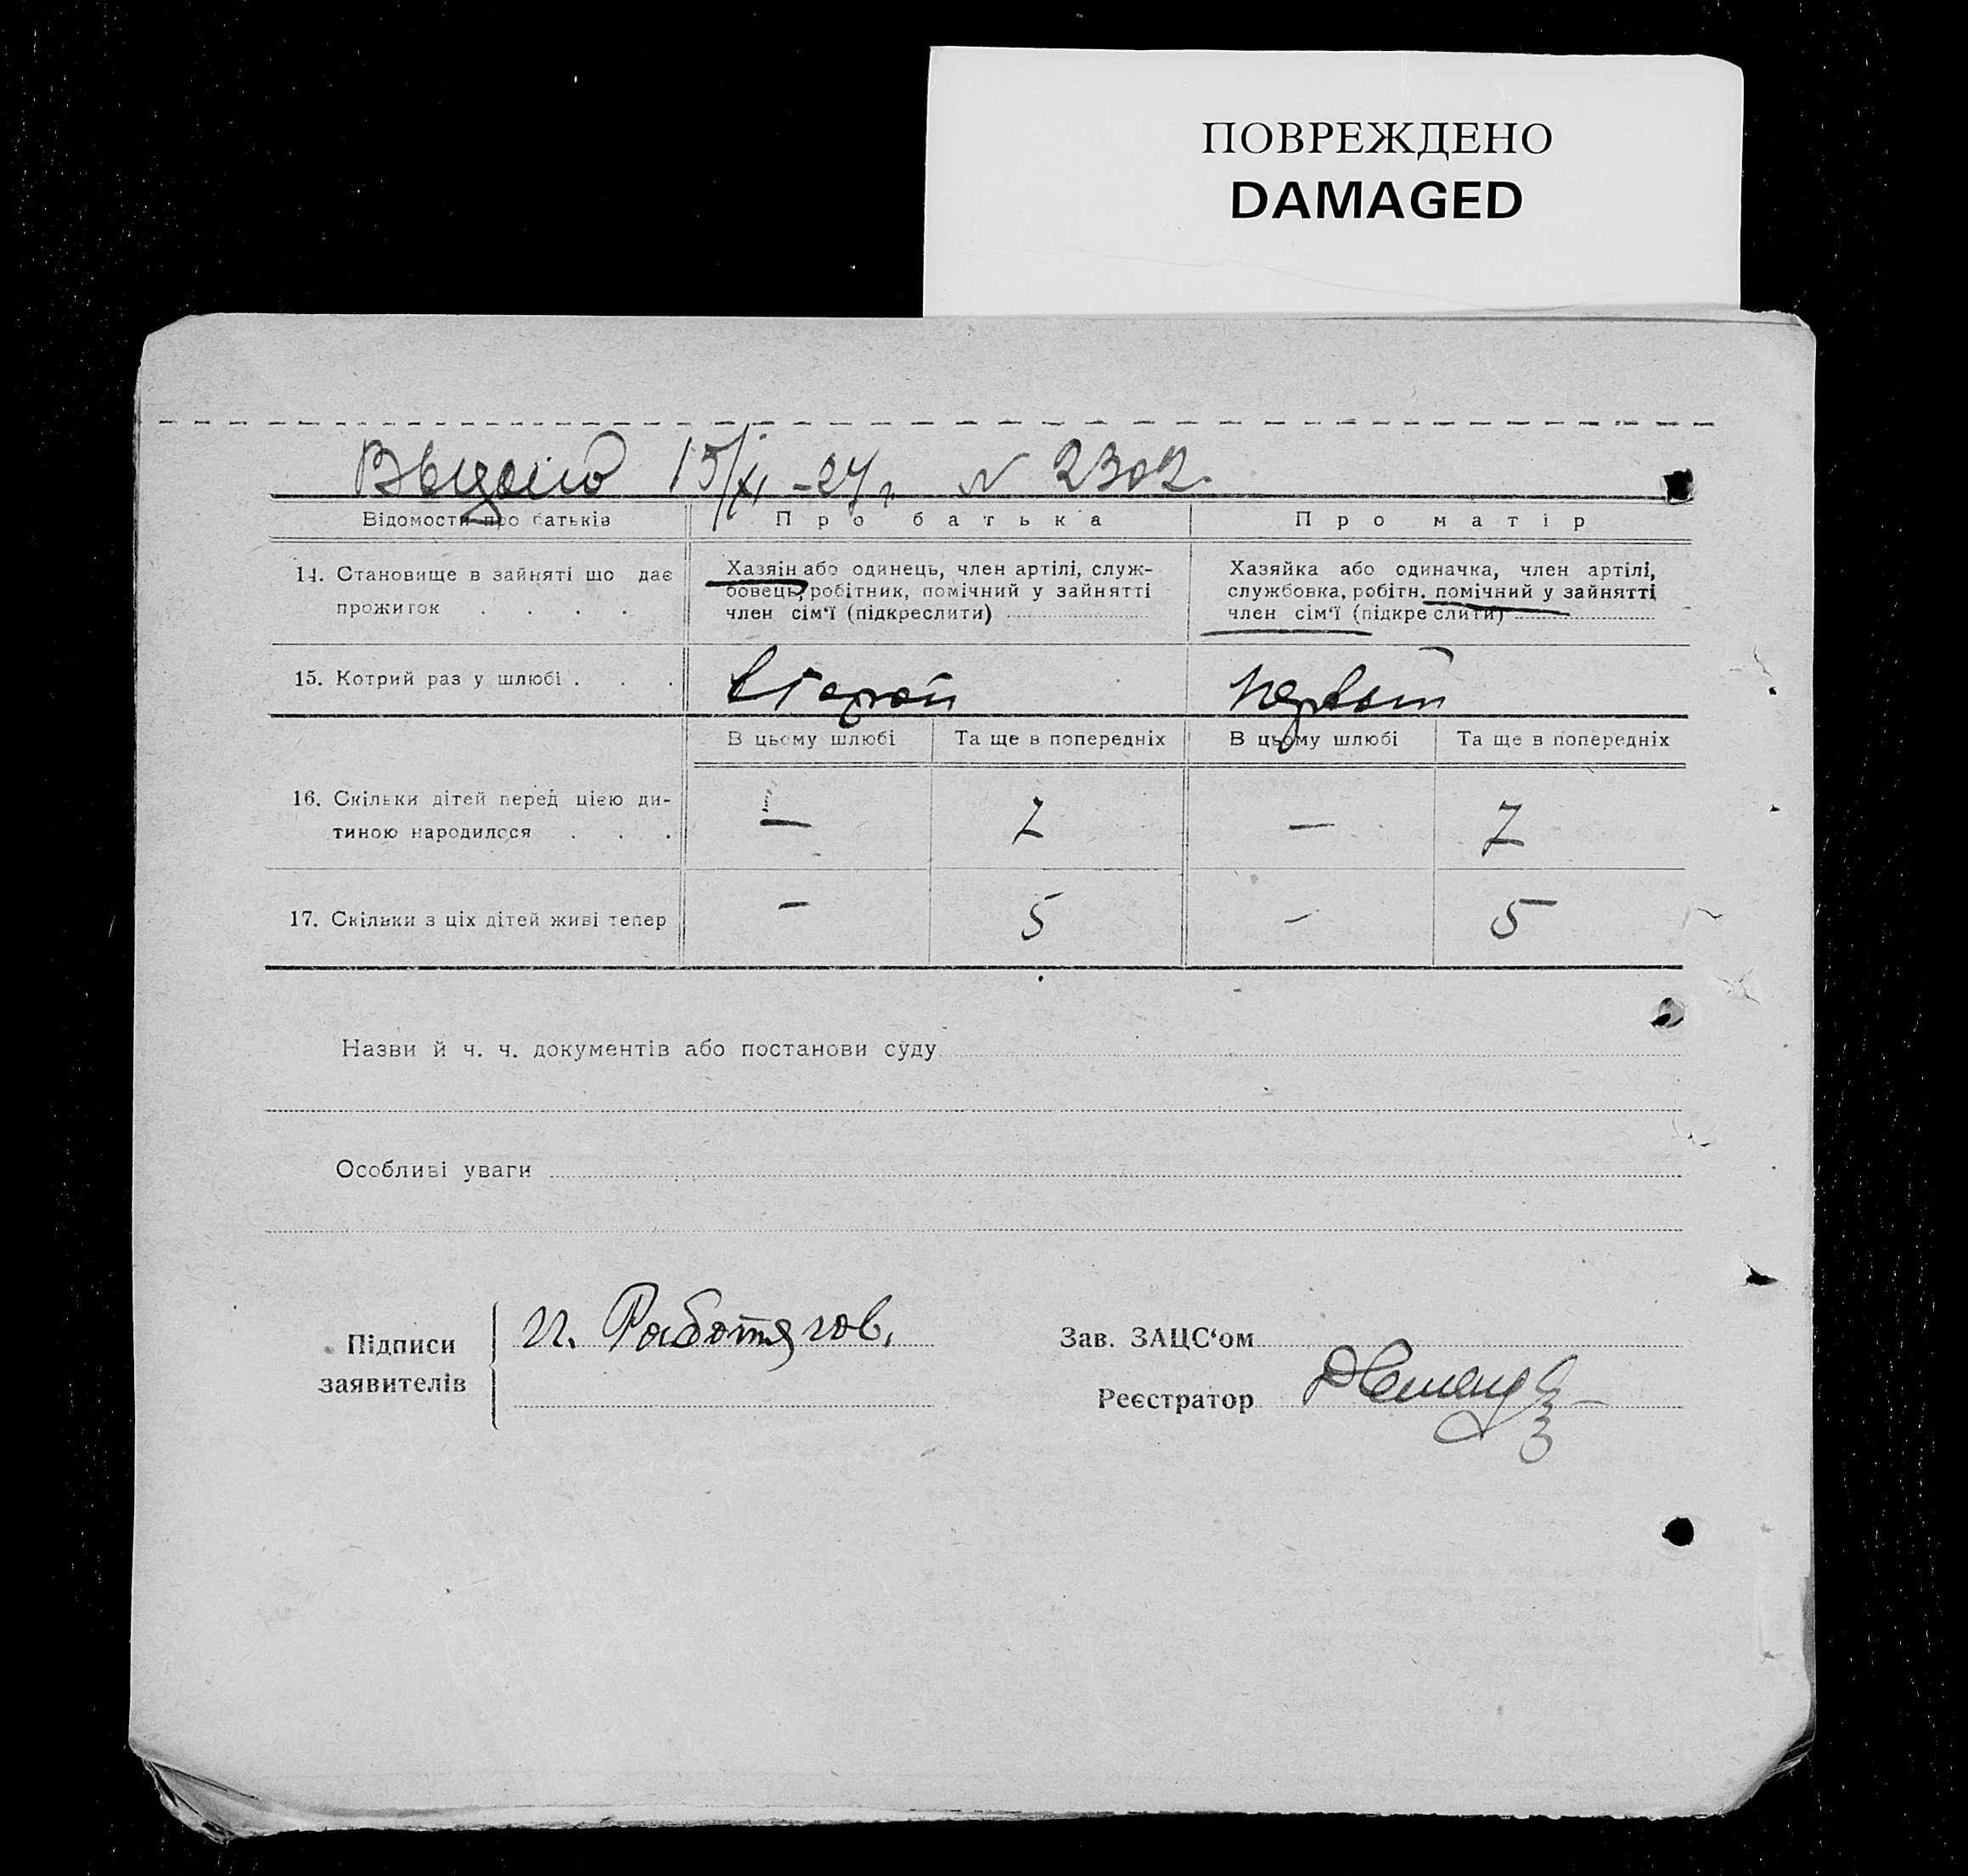 ПОВРЕЖДЕНО
DAMAGED
Выдано 15/XI - 27 г. N 2302.
Відомости про батьків Про батька Про матір
14. Становище в зайняті що дає
прожиток . . . .
Хазяїн або одинець, член артілі, служ-
бовець, робітник, помічний у зайнятті
член сім'ї (підкреслити)
Хазяйка або одиначка, член артілі,
службовка, робітн. помічний у зайнятті
член сім'ї (підкреслити)
15. Котрий раз у шлюбі . . . второй первый
В цьому шлюбі Та ще в попередніх В цьому шлюбі Та ще в попередніх
16. Скільки дітей перед цією ди-
тиною народилося . . . — 7 — 7
17. Скільки з ціх дітей живі тепер — 5 — 5
Назви й ч. ч. документів або постанови суду
Особливі уваги
Підписи
заявителів
И. Работягов.
Зав. ЗАЦС'ом
Реєстратор